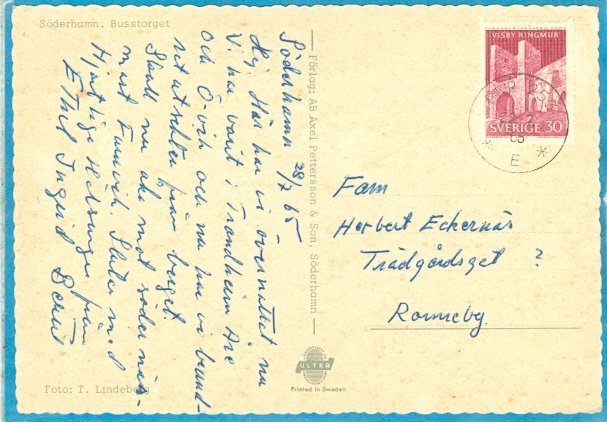 Söderhamn. Busstorget
Söderhamn 28/7 65
Hej Här ha vi övernattat nu
Vi har varit i Trondheim Åre
och Ö-vik och nu har vi beund-
rat utsikten från berget
Skall nu åka mot söder när-
mast Furuvik. Slutar med
Hjärtliga hälsningar från
Ethel Ingrid Bernt
Förlag: AB Axel Pettersson & Son, Söderhamn
VISBY RINGMUR
SVERIGE 30
65
E
Fam
Herbert Eckernäs
Trädgårdsget ?
Ronneby.
ULTRA
Printed in Sweden
Foto: T. Lindeberg